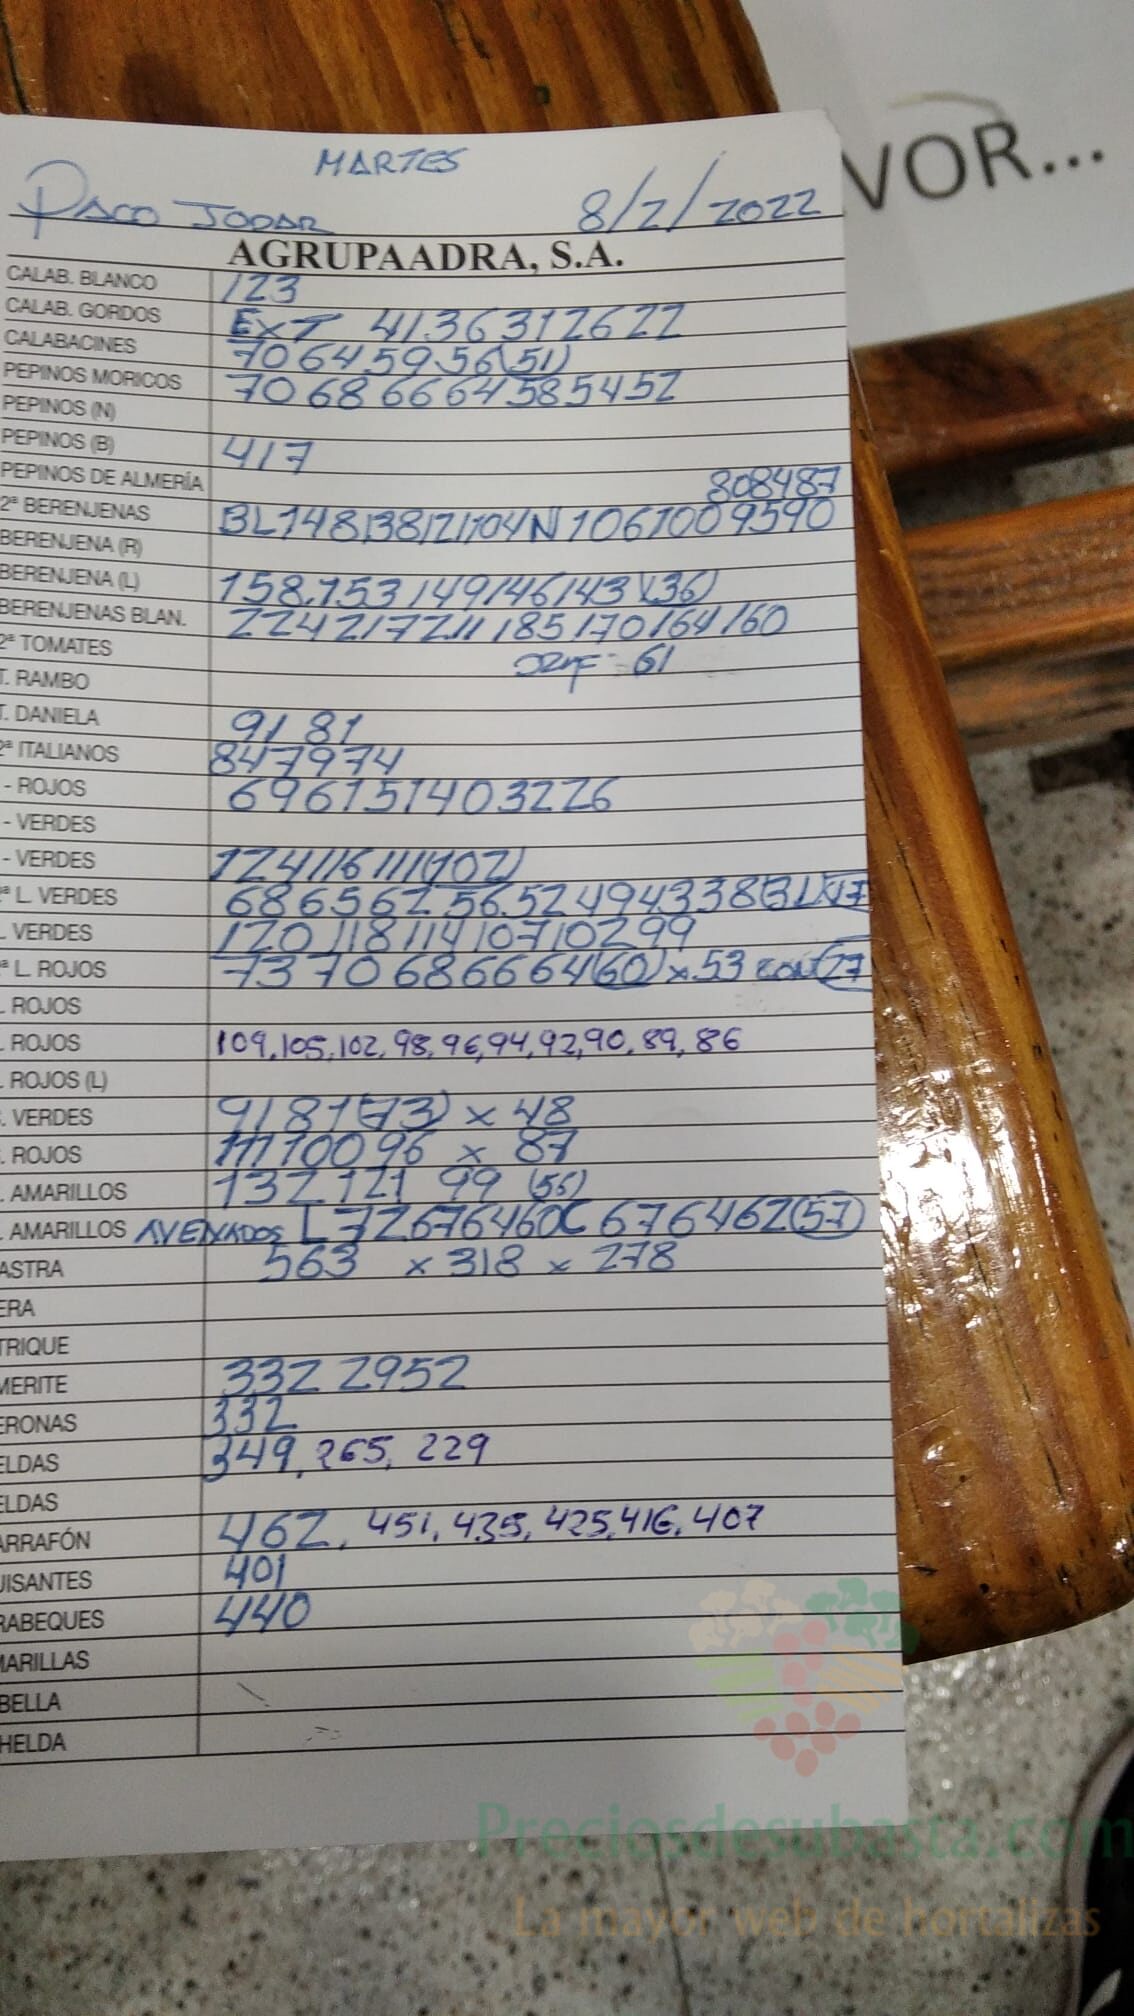 VOR...
MARTES
PACO JODAR 8/2/2022
AGRUPAADRA, S.A.
CALAB. BLANCO 123
CALAB. GORDOS EXT 4136312622
CALABACINES 70645956(51)
PEPINOS MORICOS 70686664585452
PEPINOS (N)
PEPINOS (B) 417
PEPINOS DE ALMERÍA 808487
2ª BERENJENAS BL148138121104N1061009590
BERENJENA (R)
BERENJENA (L) 158,153149146143(136)
BERENJENAS BLAN. 224217211185170164160
2ª TOMATES 61
T. RAMBO
T. DANIELA 9181
2ª ITALIANOS 847974
- ROJOS 696151403226
- VERDES
- VERDES 124116111(102)
ª L. VERDES 68656256.52494338(31)x(17)
. VERDES 12011811410710299
ª L. ROJOS 7370686664(60)x53 CON(27)
. ROJOS
. ROJOS 109,105,102,98,96,94,92,90,89,86
. ROJOS (L)
. VERDES 9181(73) x 48
. ROJOS 11110096 x 87
. AMARILLOS 132121 99 (56)
. AMARILLOS AVENADOS L 72676460C 676462(57)
ASTRA 563 x 318 x 278
ERA
TRIQUE
MERITE 332 2952
ERONAS 332
ELDAS 349, 265, 229
ELDAS
ARRAFÓN 462, 451, 435, 425, 416, 407
UISANTES 401
RABEQUES 440
MARILLAS
BELLA
HELDA
Preciosdesubasta.com
La mayor web de hortalizas